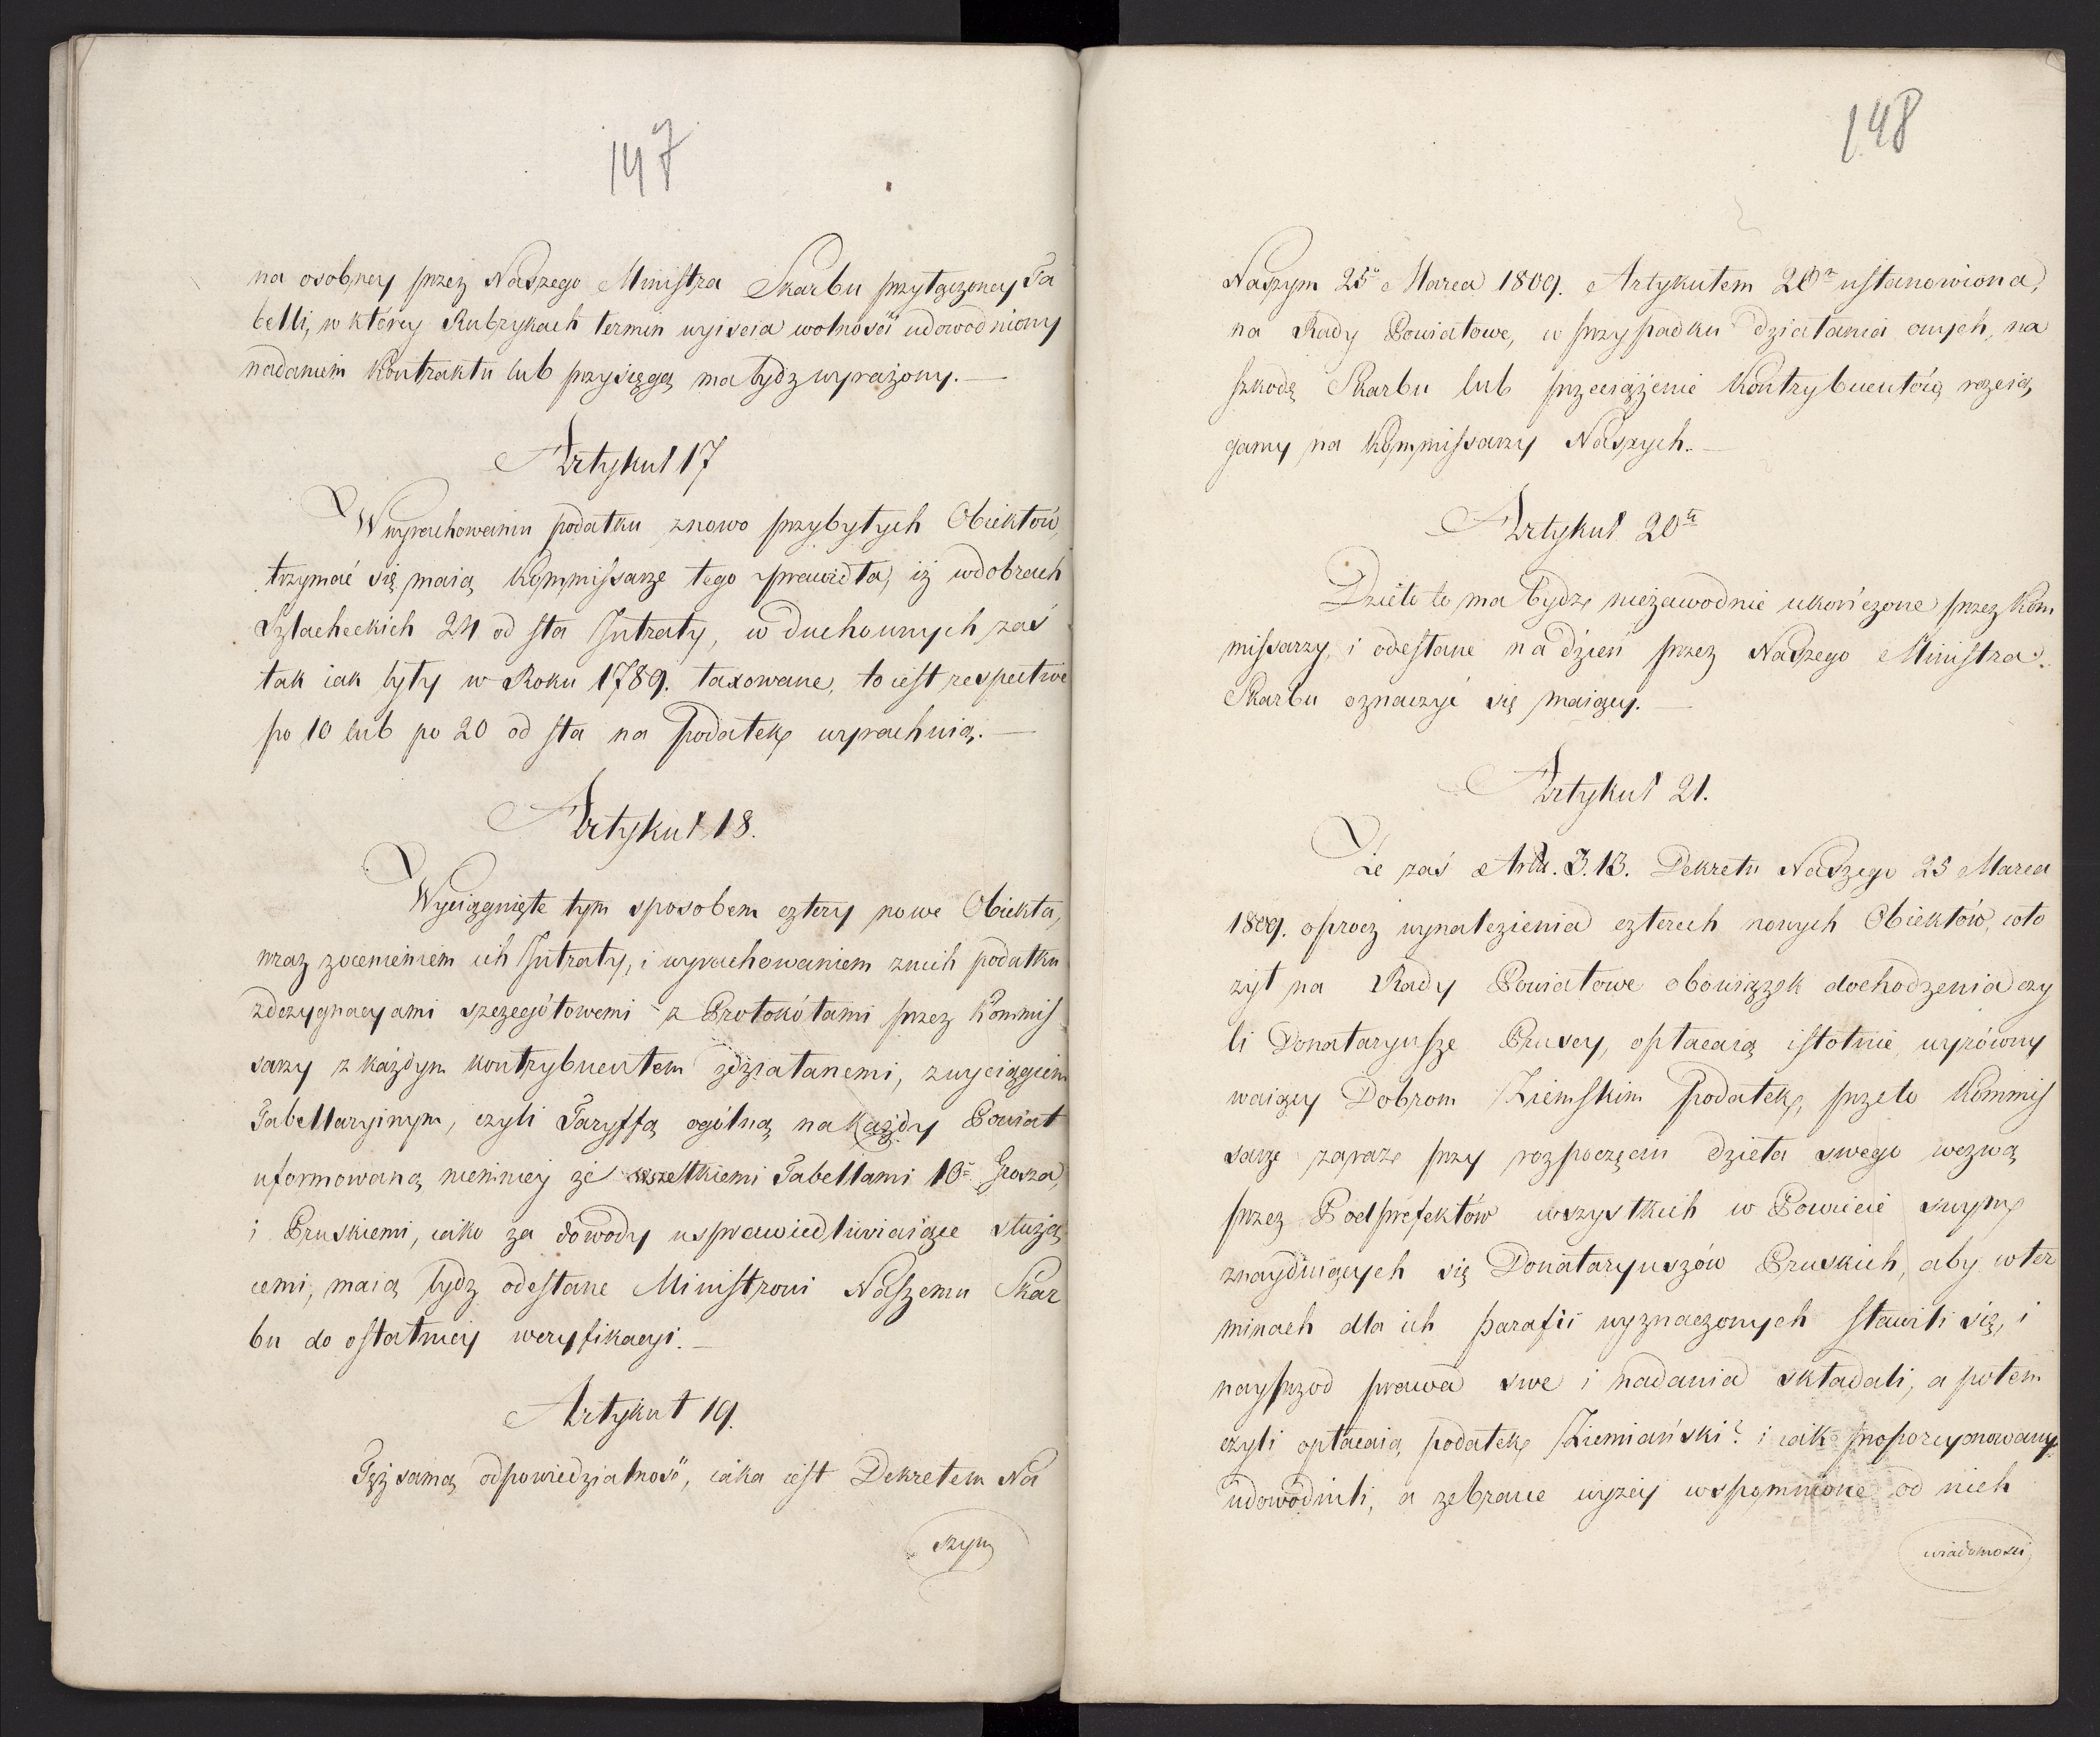 147
na osobney przez Naszego Ministra Skarbu przyłączoney Ta
belli, w którey Rubrykach termin wyiscia wolności udowodniony
nadaniem Kontraktu lub przysięgą ma bydz wyrażony.—
Artykuł 17
W wyrachowaniu podatku znowo przybyłych Obiektów,
trzymać się maią Kommissarze tego prawidła, iż w dobrach
Szlacheckich 24 od sta Intraty, w duchownych zaś
tak iak były w Roku 1789. taxowane, to iest respective
po 10 lub po 20 od sta na Podatek wyrachuią.—
Artykuł 18.
Wyciągnięte tym sposobem cztery nowe Obiekta,
wraz z ocenieniem ich Intraty, i wyrachowaniem z nich podatku
z dezygnacyami szczegółowemi z Protokółami przez Kommis
sarzy z każdym kontrybuentem zdziałanemi, z wyciągiem
Tabellaryinym, czyli Taryffą ogólną na każdy Powiat
uformowaną niemniey ze wszelkiemi Tabellami 10º Grosza,
i Pruskiemi, iako za dowody usprawiedliwiaiące służą
cemi, maią bydz odesłane Ministrowi Naszemu Skar
bu do ostatniey weryfikacyi.—
Artykuł 19.
Tęż samą odpowiedzialność, iaka iest Dekretem Na
szym
148
Naszym 25º Marca 1809. Artykułem 20m ustanowiona,
na Rady Powiatowe, w przypadku działania onych, na
szkodę Skarbu lub przeciążenie Kontrybuentów, rozcią
gamy na Kommissarzy Naszych.—
Artykuł 20ty
Dzieło to ma bydz niezawodnie ukończone przez Kom
missarzy, i odesłane na dzień przez Naszego Ministra
Skarbu oznaczyć się maiący.—
Artykuł 21.
Że zaś Artu. 3. 13. Dekretu Naszego 25 Marca
1809. oprocz wynalezienia czterech nowych Obiektów, wło
żył na Rady Powiatowe obowiązek dochodzenia czy
li Donataryusze Pruscy, opłacaią istotnie wyrówny
waiący Dobrom Ziemskim Podatek, przeto Kommis
sarze zaraz przy rozpoczęciu dzieła swego wezwą
przez Podprefektów wszystkich w Powiecie swym
znayduiących się Donataryuszów Pruskich, aby w ter
minach dla ich parafii wyznaczonych stawili się, i
nayprzod prawa swe i nadania składali, a potem
czyli opłacaią podatek Ziemiański? i iak proporcyonowany
udowodnili, a zebrane wyzey wspomnione od nich
wiadomości